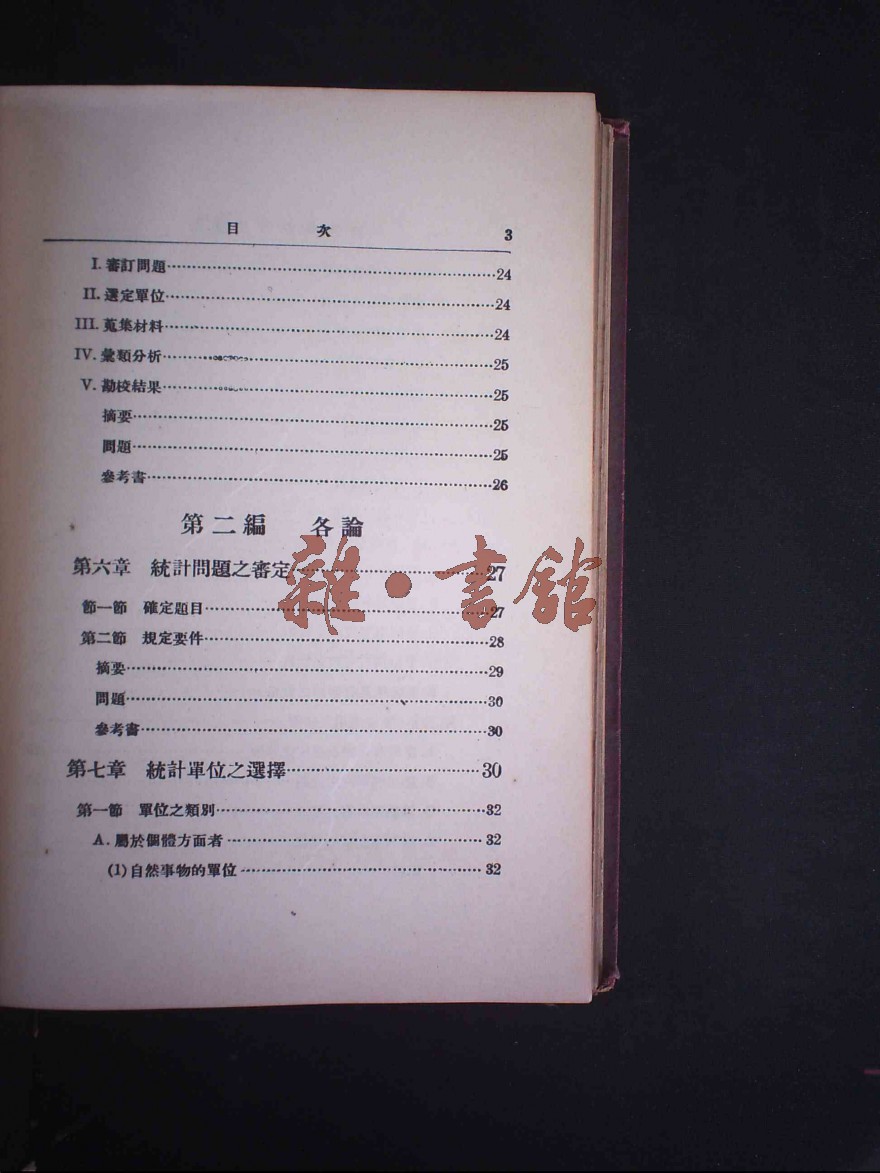 目　次　3
I. 審訂問題……24
II. 選定單位……24
III. 蒐集材料……24
IV. 彙類分析……25
V. 勘校結果……25
摘要……25
問題……25
參考書……26
第二編　各論
第六章　統計問題之審定……27
節一節　確定題目……27
第二節　規定要件……28
摘要……29
問題……30
參考書……30
第七章　統計單位之選擇……30
第一節　單位之類別……32
A. 屬於個體方面者……32
(1)自然事物的單位……32
雜·書館